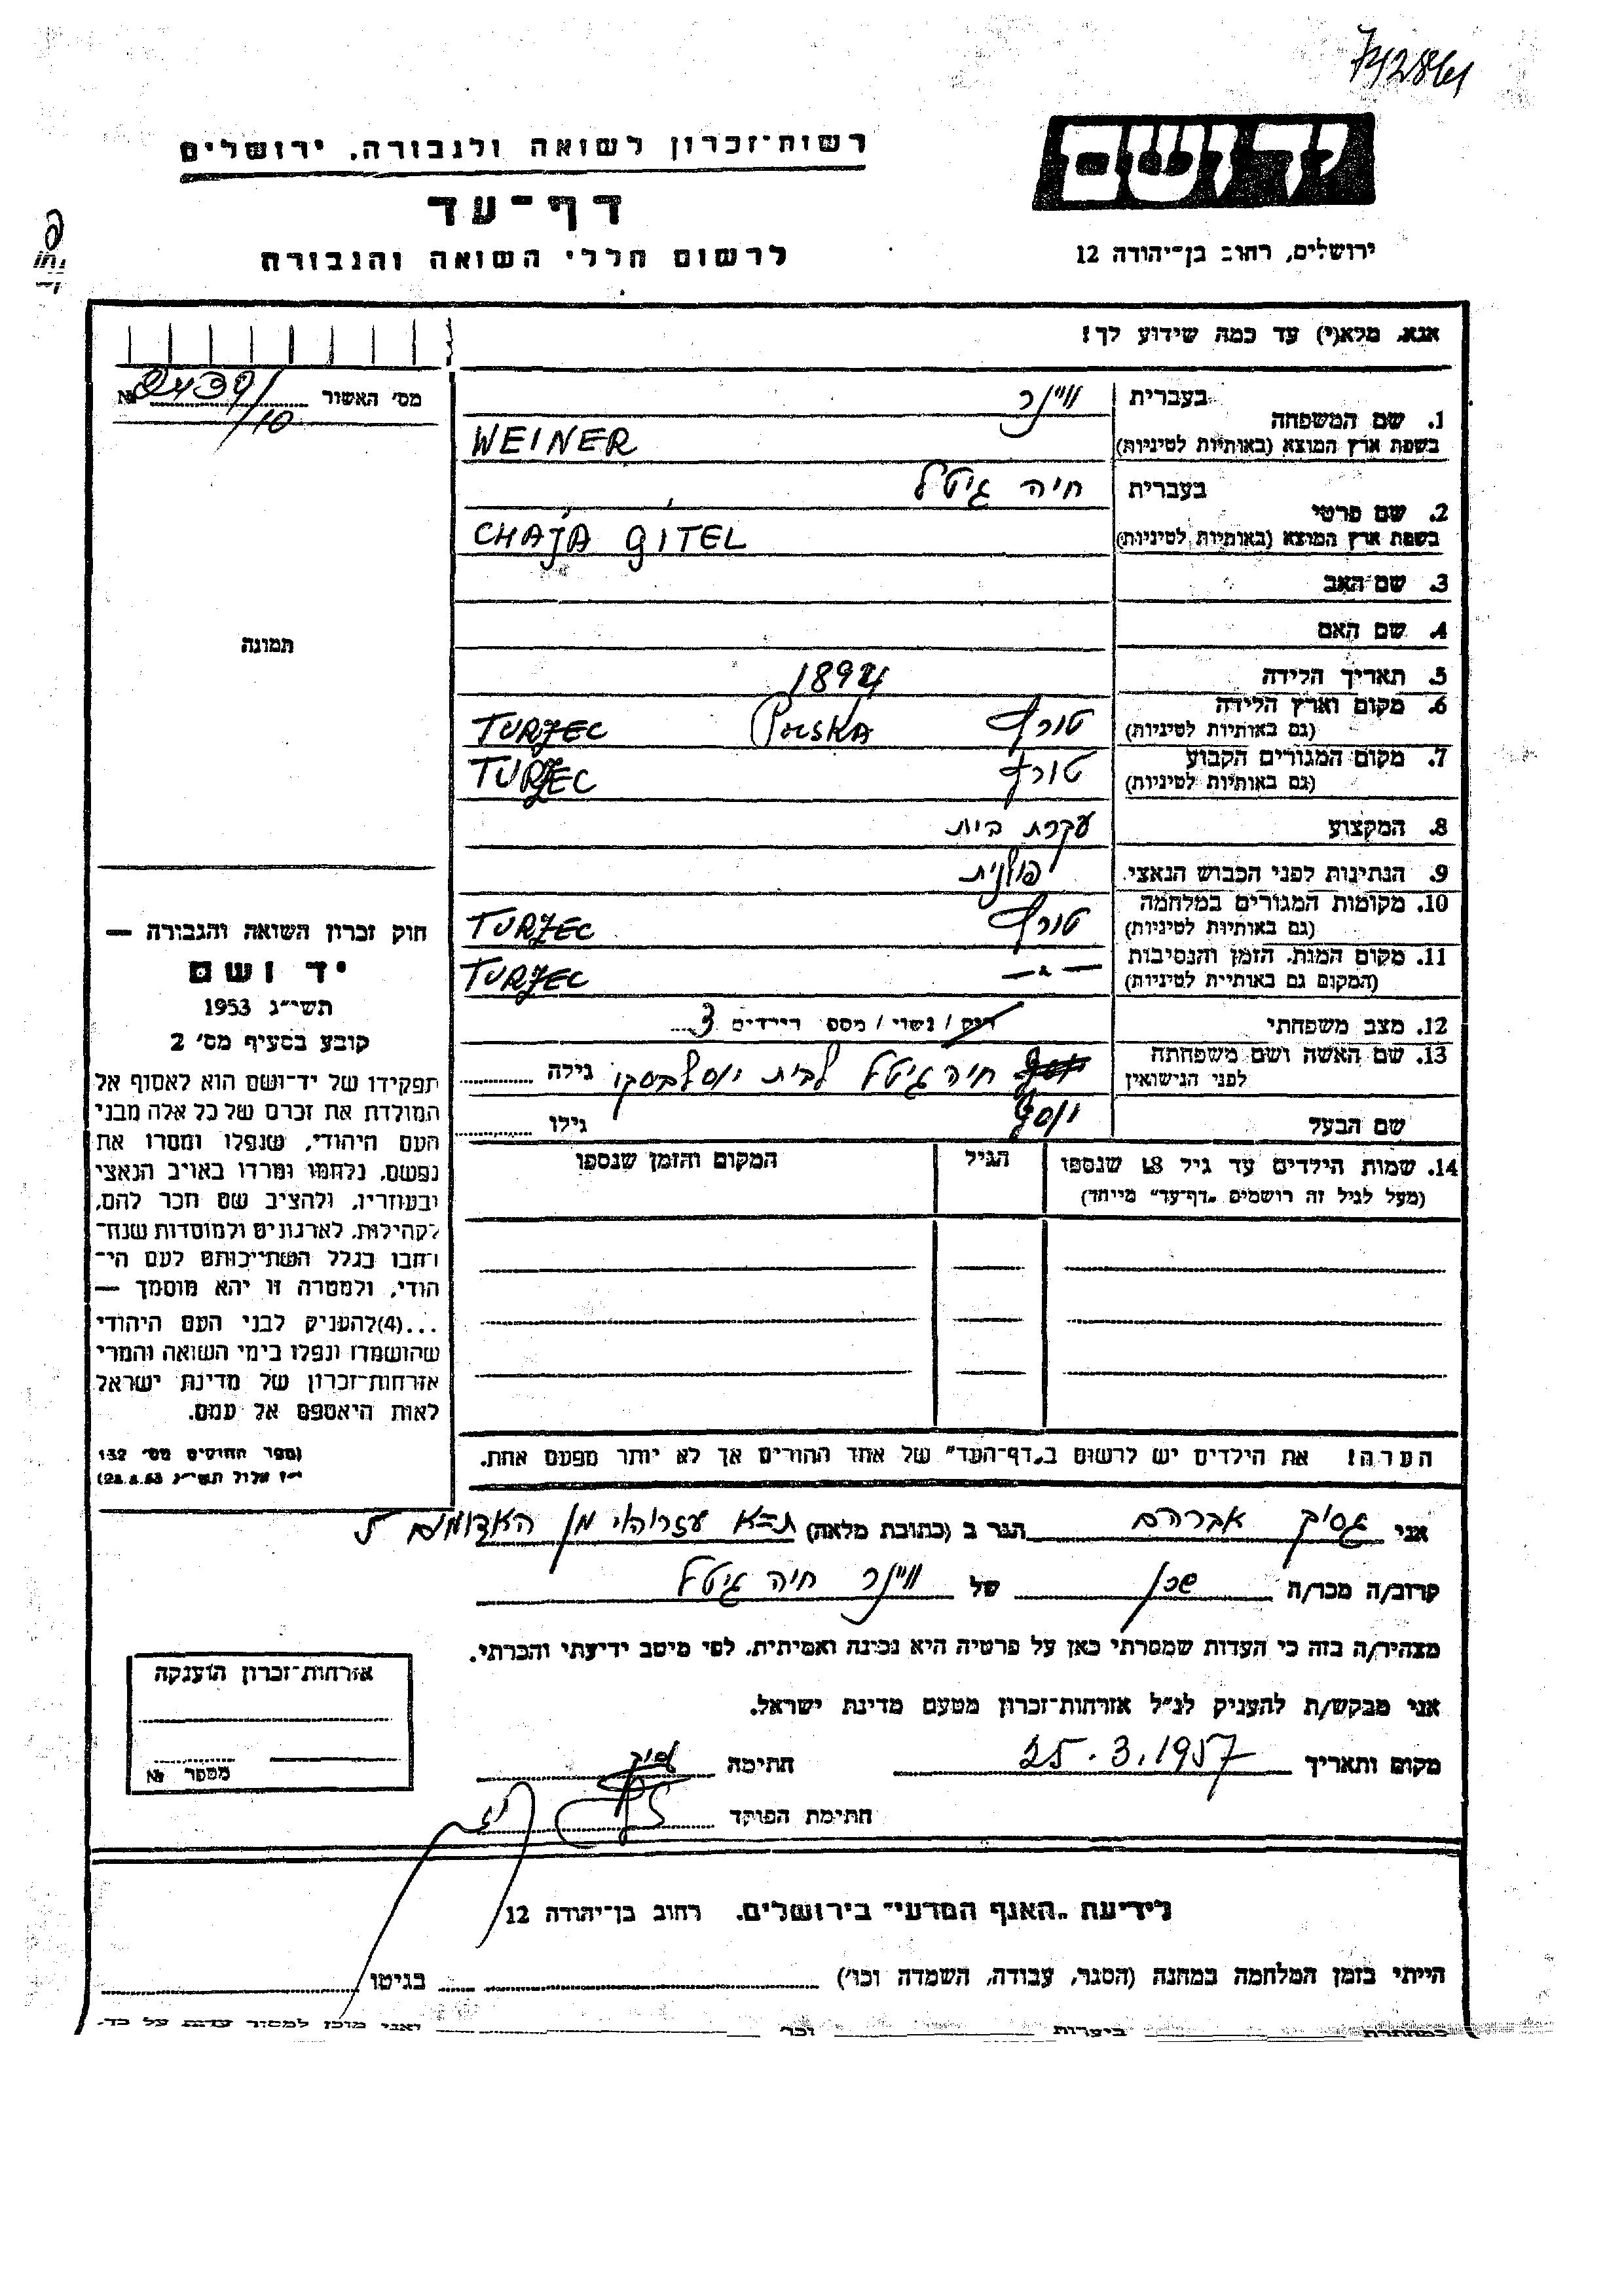 742861
יד ושם
רשות־זכרון לשואה ולגבורה, ירושלים
דף־עד
לרשום חללי השואה והגבורה
ירושלים, רחוב בן־יהודה 12
אנא, מלא(י) עד כמה שידוע לך!
מס׳ האשור
1. שם המשפחה בעברית וויינר
בשפת ארץ המוצא (באותיות לטיניות) WEINER
2. שם פרטי בעברית חיה גיטל
בשפת ארץ המוצא (באותיות לטיניות) CHAJA GITEL
3. שם האב
4. שם האם
5. תאריך הלידה 1894
6. מקום וארץ הלידה טורץ POLSKA TURZEC
(גם באותיות לטיניות)
7. מקום המגורים הקבוע טורץ TURZEC
(גם באותיות לטיניות)
8. המקצוע עקרת בית
9. הנתינות לפני הכבוש הנאצי פולנית
10. מקומות המגורים במלחמה טורץ TURZEC
(גם באותיות לטיניות)
11. מקום המות, הזמן והנסיבות — " — TURZEC
(המקום גם באותיות לטיניות)
12. מצב משפחתי רוק / נשוי / מספר הילדים 3
13. שם האשה ושם משפחתה לפני הנישואין חיה גיטל לבית יוסלבסקי גילה
שם הבעל יוסף גילו
14. שמות הילדים עד גיל 18 שנספו הגיל המקום והזמן שנספו
(מעל לגיל זה רושמים „דף־עד״ מיוחד)
הערה! את הילדים יש לרשום ב„דף־העד״ של אחד ההורים אך לא יותר מפעם אחת.
תמונה
חוק זכרון השואה והגבורה —
יד ושם
תשי״ג 1953
קובע בסעיף מס׳ 2
תפקידו של יד־ושם הוא לאסוף אל
המולדת את זכרם של כל אלה מבני
העם היהודי, שנפלו ומסרו את
נפשם, נלחמו ומרדו באויב הנאצי
ובעוזריו, ולהציב שם וזכר להם,
לקהילות, לארגונים ולמוסדות שנח־
רבו בגלל השתייכותם לעם הי־
הודי, ולמטרה זו יהא מוסמך —
...(4) להעניק לבני העם היהודי
שהושמדו ונפלו בימי השואה והמרי
אזרחות־זכרון של מדינת ישראל
לאות היאספם אל עמם.
(ספר החוקים מס׳ 132
י״ז אלול תשי״ג 28.8.53)
אני גסיק אברהם הגר ב (כתובת מלאה)
קרוב/ה מכר/ה שכן של וויינר חיה גיטל
מצהיר/ה בזה כי העדות שמסרתי כאן על פרטיה היא נכונה ואמיתית, לפי מיטב ידיעתי והכרתי.
אני מבקש/ת להעניק לנ״ל אזרחות־זכרון מטעם מדינת ישראל.
מקום ותאריך 25.3.1957 חתימה
חתימת הפוקד
אזרחות־זכרון הוענקה
מספר №
לידיעת „האגף המדעי״ בירושלים, רחוב בן־יהודה 12
הייתי בזמן המלחמה במחנה (הסגר, עבודה, השמדה וכו׳) בגיטו
במחתרת ביערות וכו׳ ואני מוכן למסור עדות על כך.